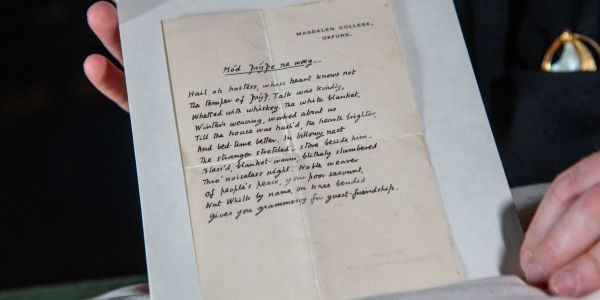 MAGDALEN COLLEGE,
OXFORD.
Mód Þrýþe ne wæg..
Hail oh hostess, whose heart knows not
The temper of Þrýþ. Talk was kindly,
Whetted with whiskey. The white blanket,
Winter's weaving, worked about us
Till the house was hush'd, the hearth brighter,
And bed-time better. In billowy nest
The stranger stretched – stove beside him –
Bless'd, blanket-warm, blithely slumbered
Thro' noiseless night. Noble weaver
Of people's peace, your poor servant,
Nat Whilk by name, on knee bended
Gives you grammercy for guest-friendship.